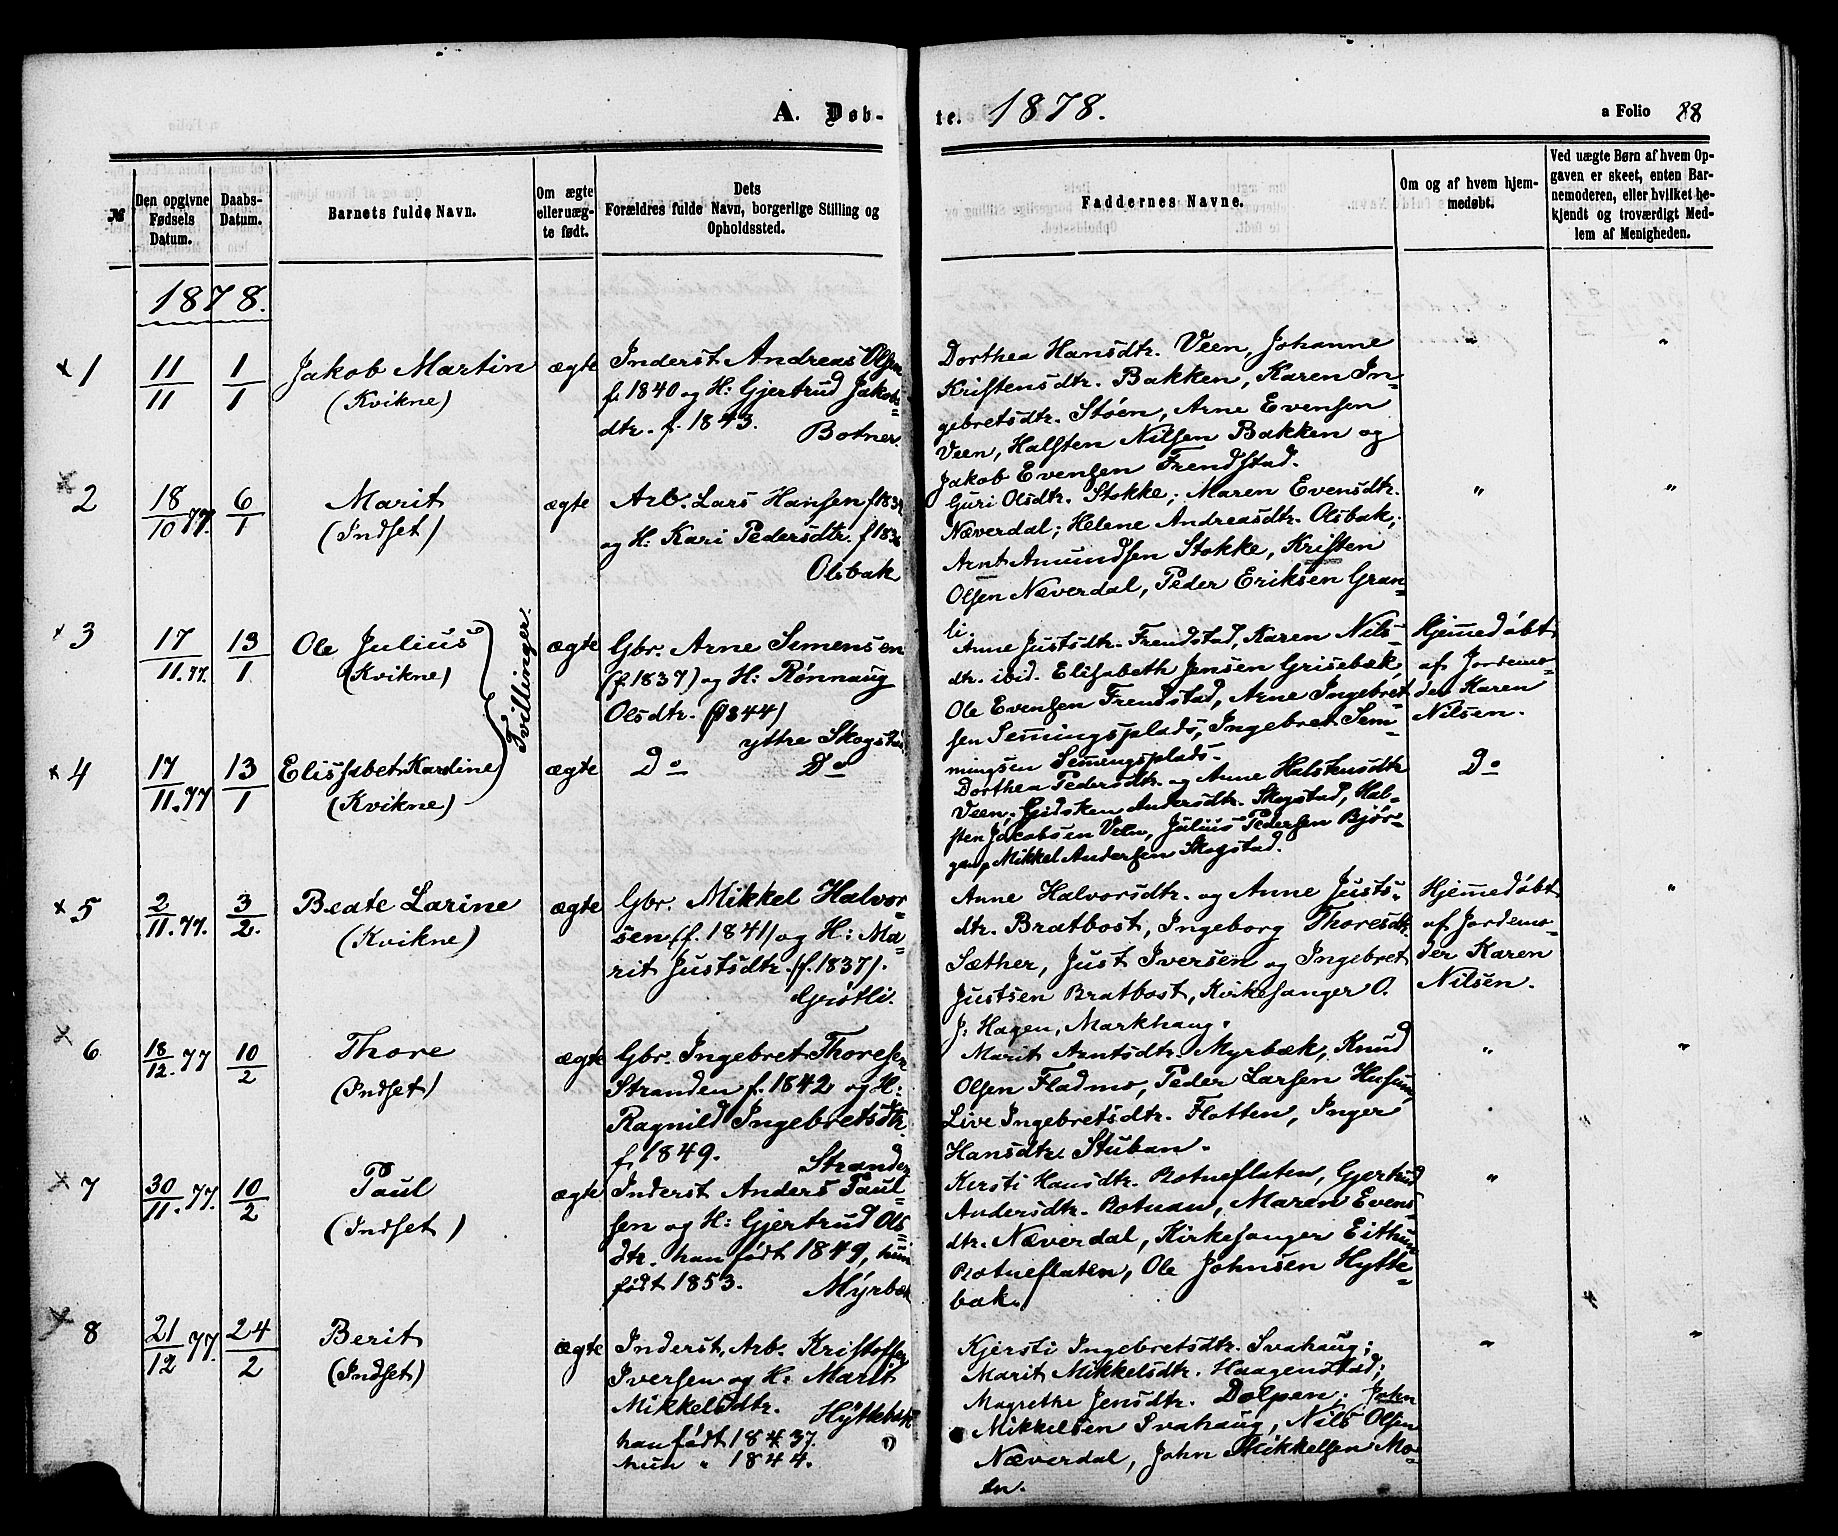 A. Døb-
te. 1878.
a Folio 88
№
Den opgivne Fødsels Datum.
Daabs-Datum.
Barnets fulde Navn.
Om ægte eller uæg-te født.
Dets
Forældres fulde Navn, borgerlige Stilling og Opholdssted.
Faddernes Navne.
Om og af hvem hjem-medøbt.
Ved uægte Børn af hvem Op-gaven er skeet, enten Bar-nemoderen, eller hvilket be-kjendt og troværdigt Med-lem af Menigheden.
1878.
x 1
11/11
1/1
Jakob Martin
(Kvikne)
ægte
Inderst Andreas Olsen
f. 1840 og H: Gjertrud Jakobs-
dtr. f. 1843.
Botner.
Dorthea Hansdtr. Veen, Johanne
Kristensdtr. Bakken, Karen In-
gebretsdtr. Støen, Arne Evensen
Veen, Halsten Nilsen Bakken og
Jakob Evensen Frendstad.
"
"
x 2
18/10 77.
6/1
Marit
(Indset)
ægte
Arb. Lars Hansen
og H: Kari Pedersdtr.
Olsbak
Guri Olsdtr. Stokke; Maren Evensdtr.
Næverdal; Helene Andreasdtr. Olsbak;
Arnt Amundsen Stokke, Kristen
Olsen Næverdal, Peder Eriksen Gran-
li.
"
"
x 3
17/11. 77.
13/1
Ole Julius
(Kvikne)
Tvillinger.
ægte
Gbr. Arne Simensen
(f. 1837) og H: Rønnaug
Olsdtr. (f 1844)
yttre Skogstad
Anne Justsdtr. Frendstad, Karen Nils-
dtr. ibid. Elisabeth Jensen Grisebæk,
Ole Evensen Frendstad, Arne Ingebret
sen Semingsplads, Ingebret Sem-
mingsen Semingsplads.
Hjemedøbt
af Jordemo-
der Karen
Nilsen.
x 4
17/11. 77
13/1
Elissabet Kardine
(Kvikne)
ægte
Do
Do
Dorthea Pedersdtr. og Anne Halstensdtr
Veen; Gidsken Andersdtr. Skogstad, Hal-
sten Jakobsen Veen, Julius Pedersen Bjør-
gan, Mikkel Andersen Skogstad.
Do
x 5
2/11. 77.
3/2.
Beate Larine
(Kvikne)
ægte
Gbr. Mikkel Halvor-
sen (f. 1841) og H: Ma-
rit Justsdtr. (f. 1837).
Grøtli.
Anne Halvorsdtr. og Anne Justs-
dtr. Bratbost, Ingeborg Thoresdtr.
Sæther, Just Iversen og Ingebret
Justsen Bratbost, Kirkesanger O.
J. Hagen, Markhaug.
Hjemedøbt
af Jordemo-
der Karen
Nilsen.
"
x 6
18/12. 77
10/2
Thore
(Indset)
ægte
Gbr. Ingebret Thoresen
Stranden f. 1842 og H:
Ragnild Ingebretsdtr.
f. 1849.
Stranden
Marit Arntsdtr. Myrbæk, Knud
Olsen Fladmo, Peder Larsen Husum,
Live Ingebretsdtr. Flotten, Inger
Hansdtr. Stuban.
"
"
x 7
30/11. 77.
10/2
Paul
(Indset)
ægte
Inderst Anders Paul-
sen og H: Gjertrud Ols-
dtr. han født 1849, hun
født 1853.
Myrbæk
Kersti Hansdtr. Botneflaten, Gjertrud
Andersdtr. Botnan, Maren Evens-
dtr. Næverdal, Kirkesanger Eithun
Botneflaten, Ole Johnsen Hytte-
bak.
"
x 8
21/12 77.
24/2
Berit
(Indset)
ægte
Inderst, Arb. Kristoffer
Iversen og H: Marit
Mikkelsdtr.
Hyttebak
han født 1837.
hun " 1844.
Kjersti Ingebretsdtr. Svahaug;
Marit Mikkelsdtr. Haagenstad;
Magrethe Jensdtr. Dølpen; John
Mikkelsen Svahaug, Nils Olsen
Næverdal, John Mikkelsen Mo-
en.
"
"